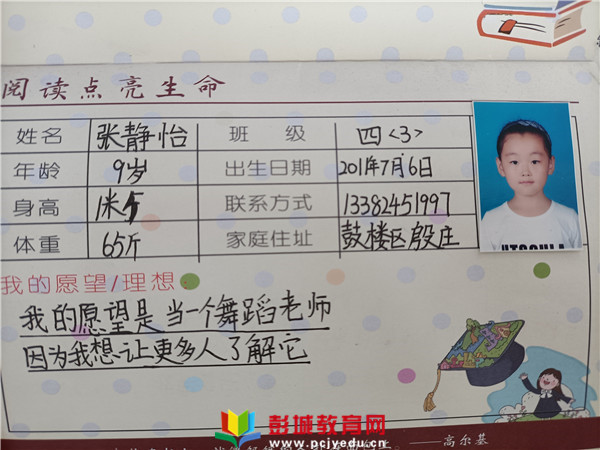 阅读点亮生命
姓名 张静怡 班级 四<3>
年龄 9岁 出生日期 2011年7月6日
身高 1米 联系方式 13382451997
体重 65斤 家庭住址 鼓楼区殷庄
我的愿望/理想
我的愿望是当一个舞蹈老师
因为我想让更多人了解它
彭城教育网
www.pcjyedu.cn
——高尔基